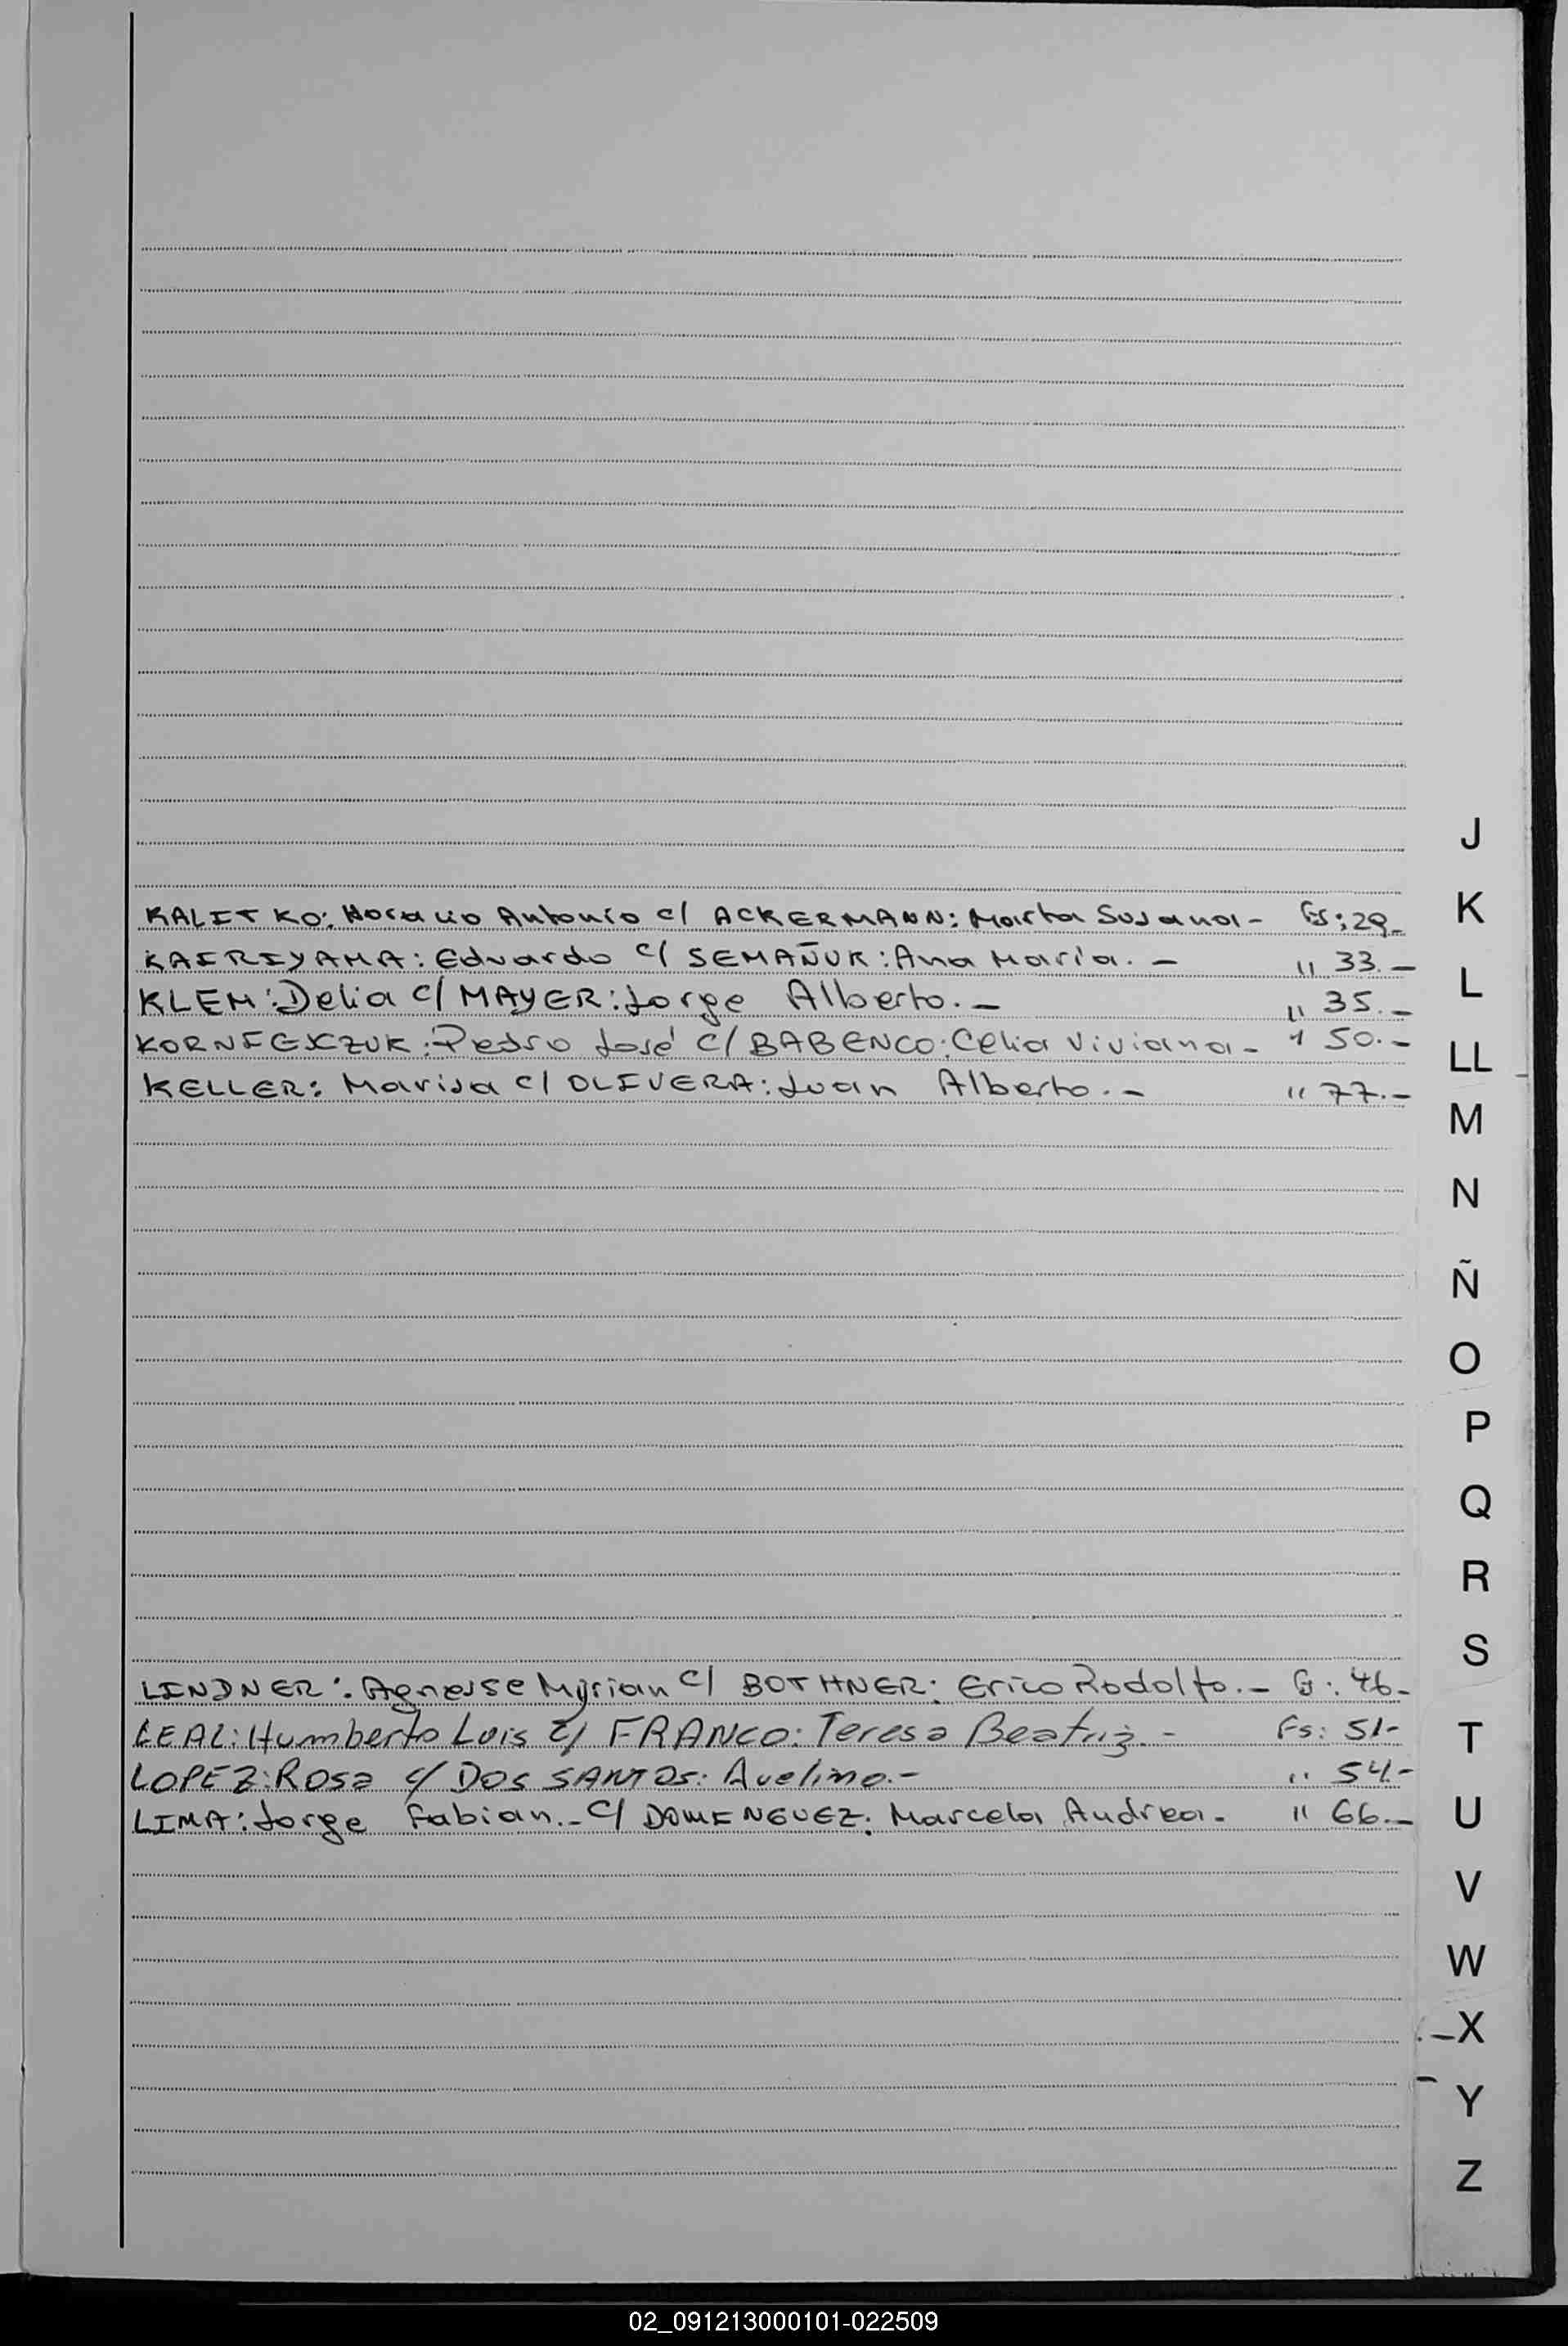 KALITKO: Horacio Antonio c/ ACKERMANN: Marta Susana - Fs: 29-
KAIRIYAMA: Eduardo c/ SEMAÑUK: Ana María. - " 33.-
KLEM: Delia c/ MAYER: Jorge Alberto. - " 35.-
KORNIGKZUK: Pedro José c/ BABENCO: Celia Viviana - " 50.-
KELLER: Marisa c/ OLIVERA: Juan Alberto. - " 77.-
LINDNER: Myrian c/ BOTHNER: Erico Rodolfo. - Fs: 46-
LEAL: Humberto Luis c/ FRANCO: Teresa Beatriz. - Fs: 51-
LOPEZ: Rosa c/ DOS SANTOS: Avelino. - " 54.-
LIMA: Jorge Fabian. - c/ DOMINGUEZ: Marcela Andrea. - " 66.-
J
K
L
LL
M
N
Ñ
O
P
Q
R
S
T
U
V
W
X
Y
Z
02_091213000101-022509